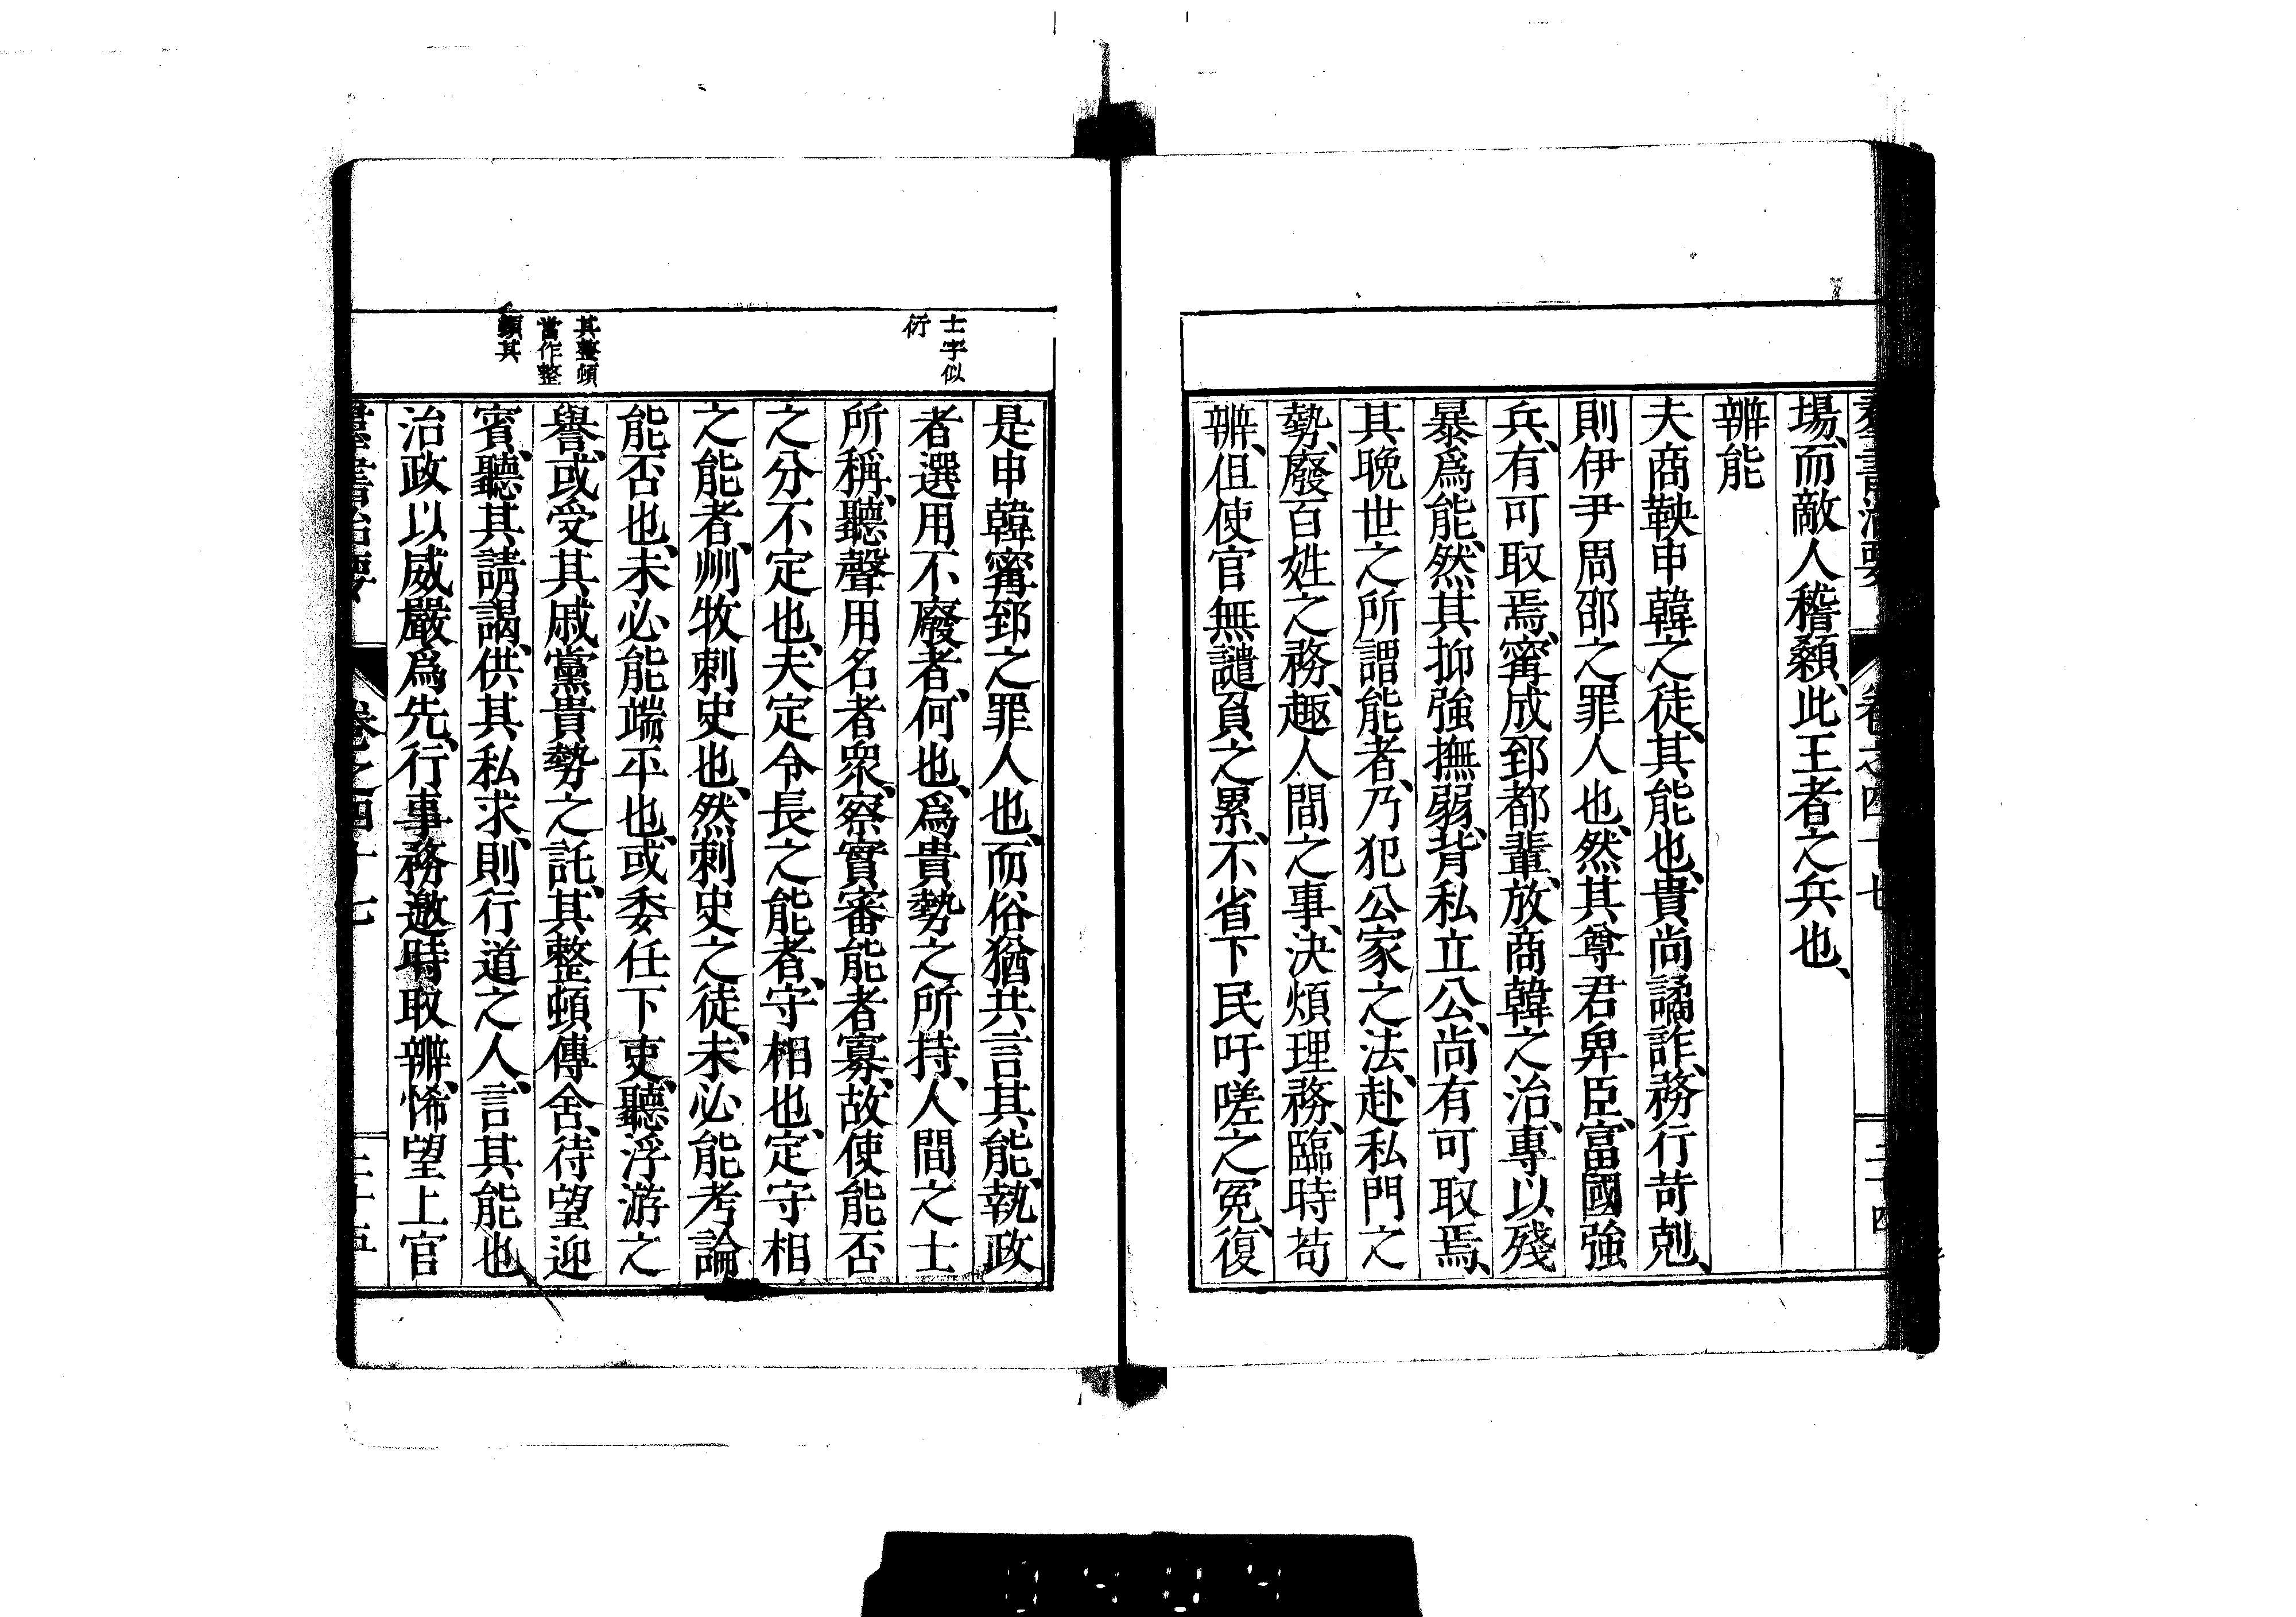 羣書治要 卷之四十七 三十四
場、而敵人稽顙、此王者之兵也、
辨能
夫商鞅申韓之徒、其能也、貴尚譎詐、務行苛剋、
則伊尹周邵之罪人也、然其尊君卑臣、富國強
兵、有可取焉、甯成郅都輩、放商韓之治、專以殘
暴爲能、然其抑強撫弱、背私立公、尚有可取焉、
其晚世之所謂能者、乃犯公家之法、赴私門之
勢、廢百姓之務、趣人間之事、決煩理務、臨時苟
辨、但使官無譴負之累、不省下民吁嗟之冤、復
士字似
衍
是申韓甯郅之罪人也、而俗猶共言其能、執政
者選用不廢者、何也、爲貴勢之所持、人間之士
所稱、聽聲用名者衆、察實審能者寡、故使能否
之分不定也、夫定令長之能者、守相也、定守相
之能者、州牧刺史也、然刺史之徒、未必能考論
能否也、未必能端平也、或委任下吏、聽浮游之
其整頓
當作整
頓其
譽、或受其戚黨貴勢之託、其整頓傳舍、待望迎
賓、聽其請謁、供其私求、則行道之人、言其能也
治政以威嚴爲先、行事務邀時取辨、悕望上官
羣書治要 卷之四十七 三十五